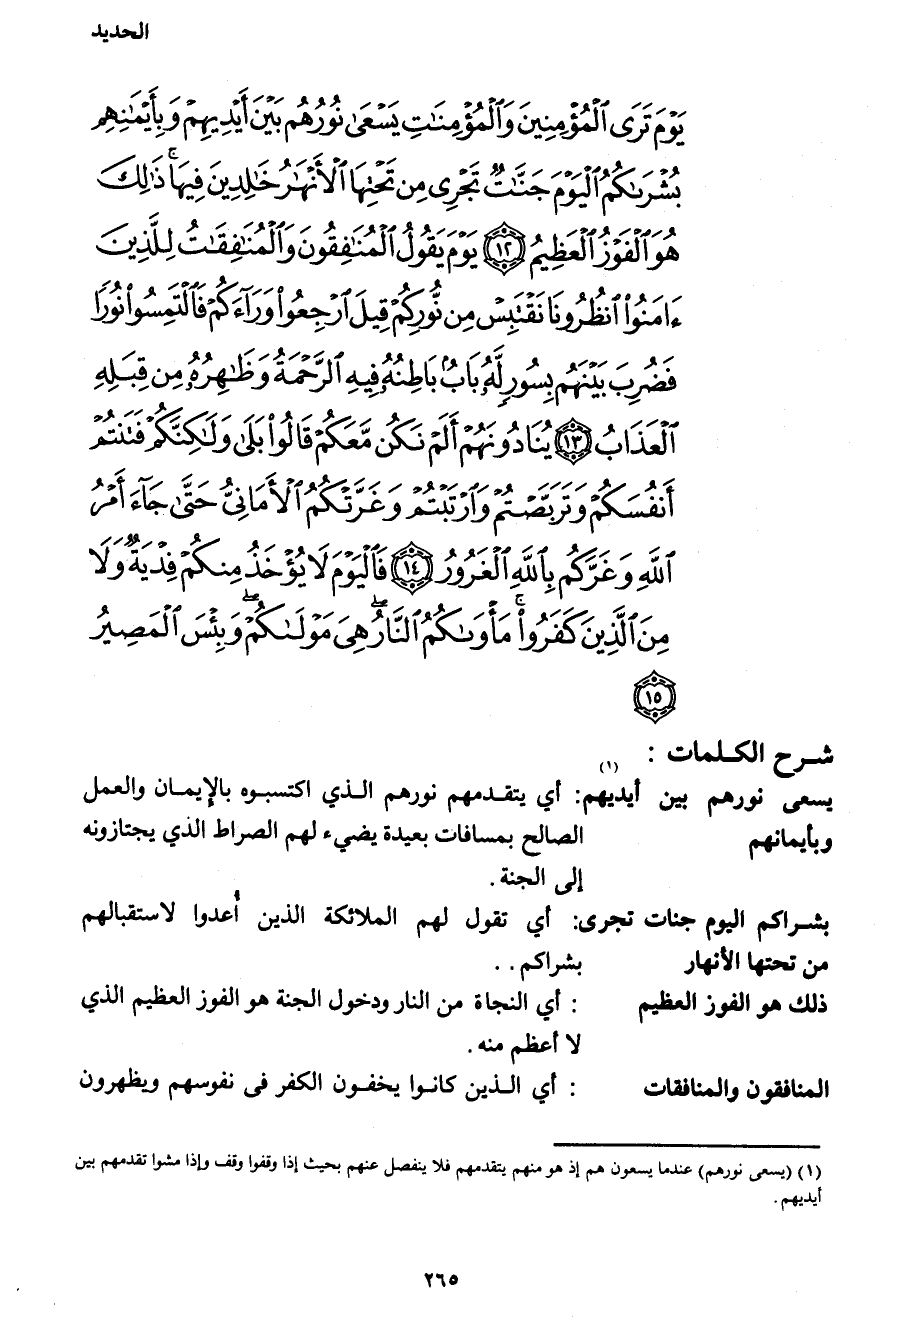 الحديد
يَوْمَ تَرَى ٱلْمُؤْمِنِينَ وَٱلْمُؤْمِنَٰتِ يَسْعَىٰ نُورُهُم بَيْنَ أَيْدِيهِمْ وَبِأَيْمَٰنِهِم
بُشْرَىٰكُمُ ٱلْيَوْمَ جَنَّٰتٌ تَجْرِى مِن تَحْتِهَا ٱلْأَنْهَٰرُ خَٰلِدِينَ فِيهَا ۚ ذَٰلِكَ
هُوَ ٱلْفَوْزُ ٱلْعَظِيمُ ١٢ يَوْمَ يَقُولُ ٱلْمُنَٰفِقُونَ وَٱلْمُنَٰفِقَٰتُ لِلَّذِينَ
ءَامَنُوا۟ ٱنظُرُونَا نَقْتَبِسْ مِن نُّورِكُمْ قِيلَ ٱرْجِعُوا۟ وَرَآءَكُمْ فَٱلْتَمِسُوا۟ نُورًا
فَضُرِبَ بَيْنَهُم بِسُورٍ لَّهُۥ بَابٌۢ بَاطِنُهُۥ فِيهِ ٱلرَّحْمَةُ وَظَٰهِرُهُۥ مِن قِبَلِهِ
ٱلْعَذَابُ ١٣ يُنَادُونَهُمْ أَلَمْ نَكُن مَّعَكُمْ قَالُوا۟ بَلَىٰ وَلَٰكِنَّكُمْ فَتَنتُمْ
أَنفُسَكُمْ وَتَرَبَّصْتُمْ وَٱرْتَبْتُمْ وَغَرَّتْكُمُ ٱلْأَمَانِىُّ حَتَّىٰ جَآءَ أَمْرُ
ٱللَّهِ وَغَرَّكُم بِٱللَّهِ ٱلْغَرُورُ ١٤ فَٱلْيَوْمَ لَا يُؤْخَذُ مِنكُمْ فِدْيَةٌ وَلَا
مِنَ ٱلَّذِينَ كَفَرُوا۟ ۚ مَأْوَىٰكُمُ ٱلنَّارُ ۖ هِىَ مَوْلَىٰكُمْ ۖ وَبِئْسَ ٱلْمَصِيرُ
١٥
شرح الكلمات :
يسعى نورهم بين أيديهم(١): أي يتقدمهم نورهم الذي اكتسبوه بالإيمان والعمل
وبأيمانهم الصالح بمسافات بعيدة يضيء لهم الصراط الذي يجتازونه
إلى الجنة.
بشراكم اليوم جنات تجرى: أي تقول لهم الملائكة الذين أُعدوا لاستقبالهم
من تحتها الأنهار بشراكم..
ذلك هو الفوز العظيم : أي النجاة من النار ودخول الجنة هو الفوز العظيم الذي
لا أعظم منه.
المنافقون والمنافقات : أي الذين كانوا يخفون الكفر فى نفوسهم ويظهرون
(١) (يسعى نورهم) عندما يسعون هم إذ هو منهم يتقدمهم فلا ينفصل عنهم بحيث إذا وقفوا وقف وإذا مشوا تقدمهم بين
أيديهم.
٢٦٥